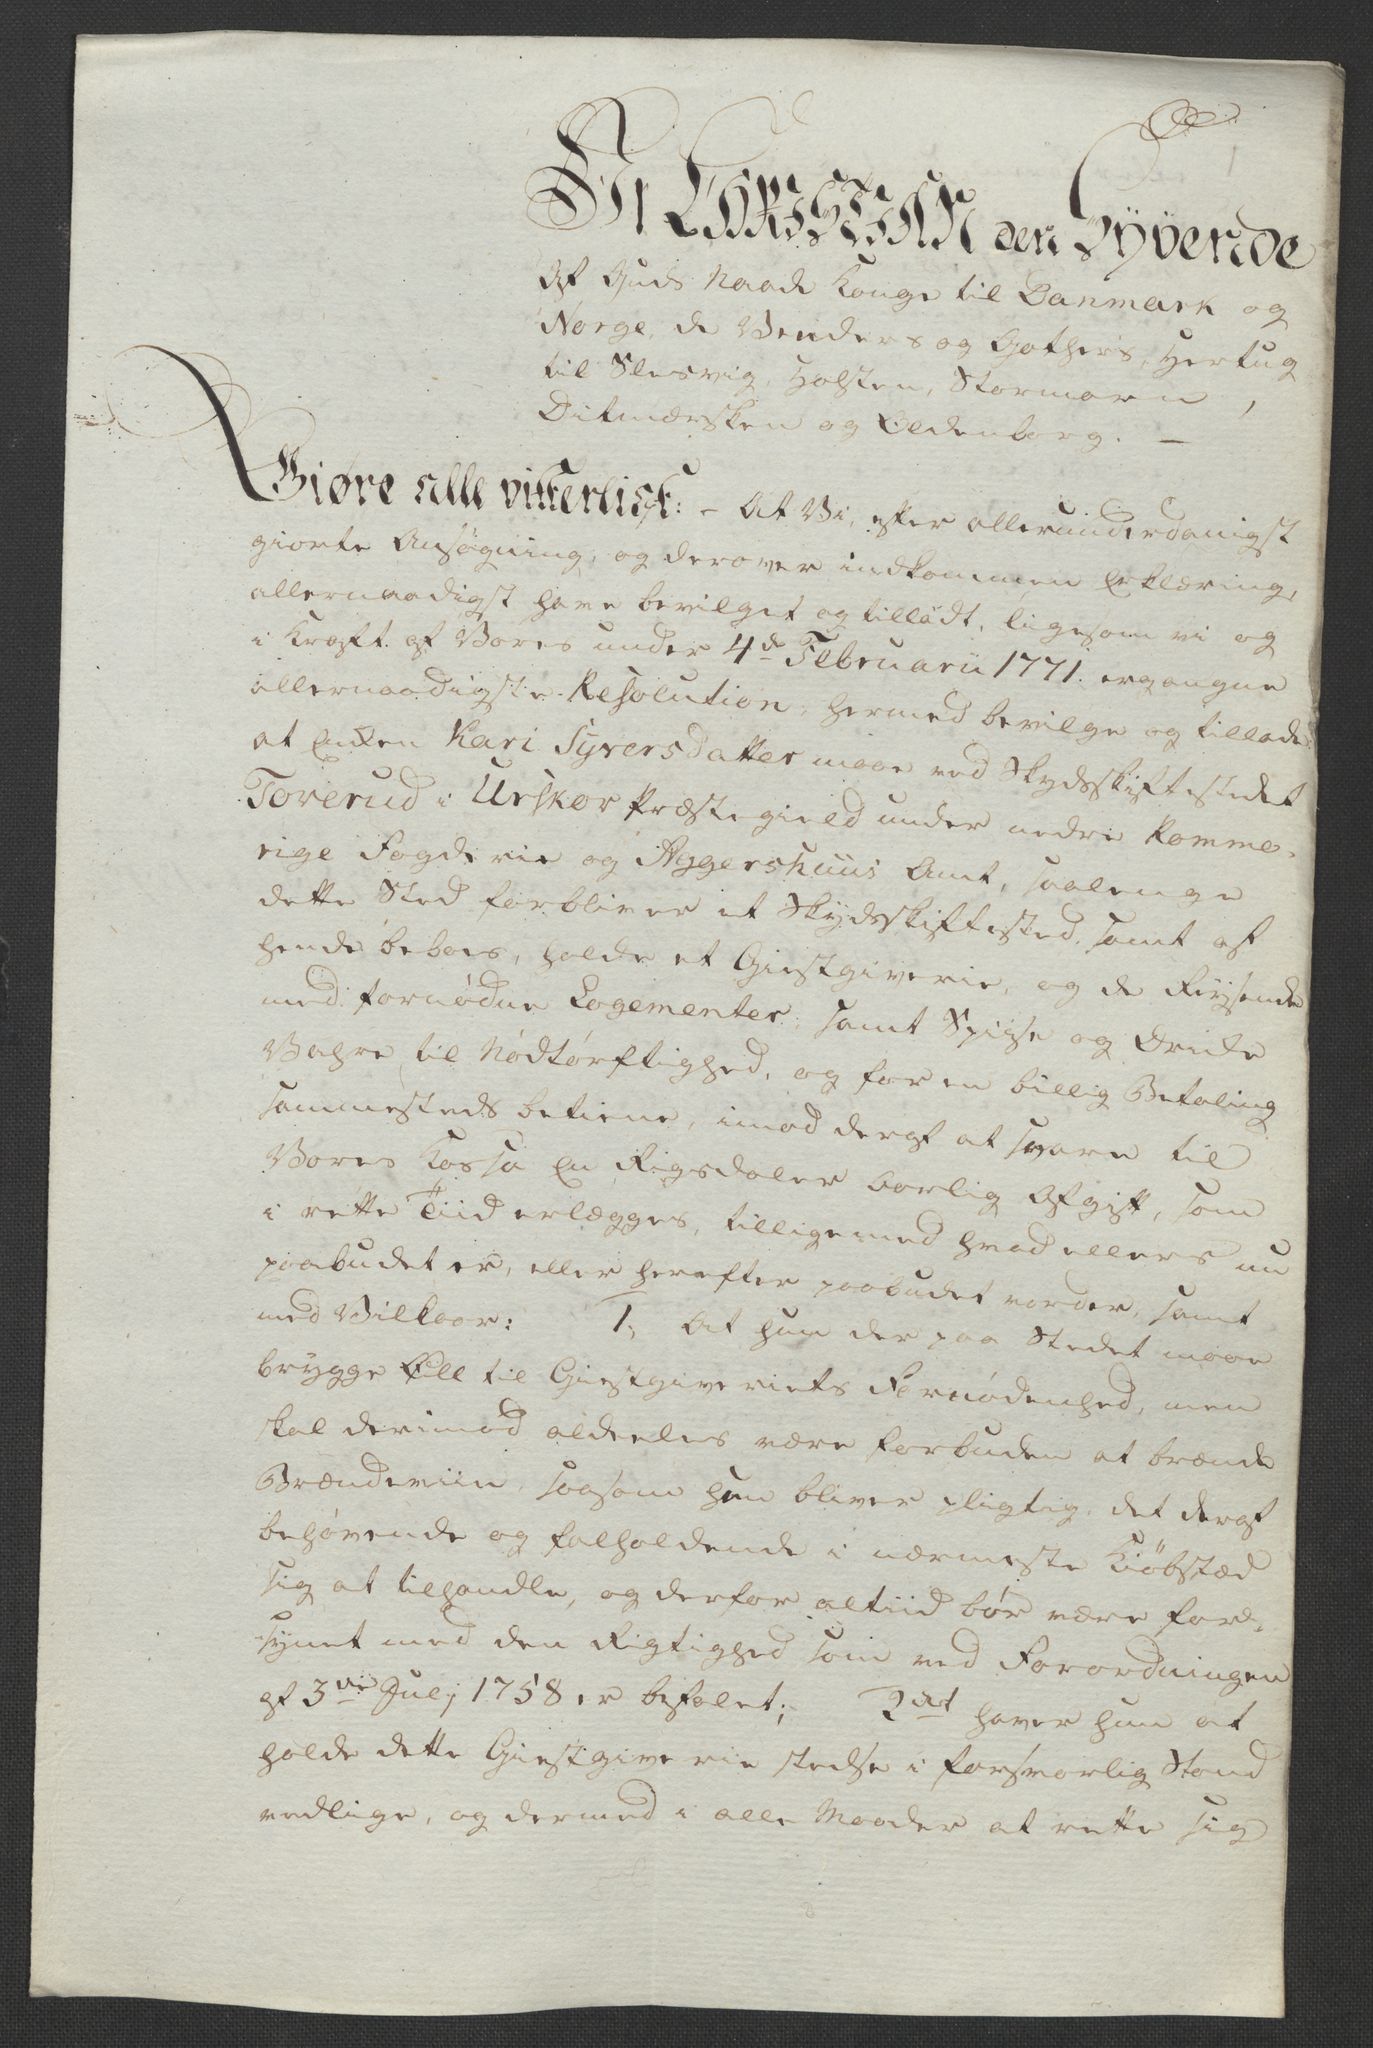 Vi CHRISTIAN den Syvende
Af Guds Naade Konge til Danmark og
Norge, de Venders og Gothers, Hertug
til Slesvig, Holsten, Stormarn,
Ditmersken og Oldenborg. —
Giøre alle vitterligt: – At Vi, efter allerunderdanigst
giorte Ansøgning, og derover indkommen Erklæring,
allernaadigst have bevilget og tilladt, ligesom vi og
i Kraft af Vores under 4de Februarii 1771. ergangne
allernaadigste Resolution, hermed bevilge og tillade
at Enken Kari Syversdatter maae ved Skydsskiftestedet
Toverud i Urskor Præstegield under nedre Romme-
rige Fogderie og Aggershuus Amt, saalenge
dette Sted forbliver et Skydsskiftested, samt af
hende beboes, holde et Giestgiverie, og de Reysende
med fornødne Logementer, samt Spiise og Drikke
Vahre til Nødtørftighed, og for en billig Betaling
sammesteds betiene, imod deraf at svare til
Vores Kassa En Rigsdaler aarlig Afgift, som
i rette Tiid erlægges, tilligemed hvad ellers nu
paabudet er, eller herefter paabudet vorder, samt
med Vilkaar: 1, At hun der paa Stedet maae
brygge Øll til Giestgiveriets Fornødenhed, men
skal derimod aldeeles være forbuden at brænde
Brændeviin, saasom hun bliver pligtig, det deraf
behøvende og falholdende i nærmeste Kiöbstæd
sig at tilhandle, og derfor altiid bør være for-
synet med den Rigtighed som ved Forordningen
af 3die Julj 1758 er befalet; 2det haver hun at
holde dette Giestgiverie stedse i forsvarlig Stand
vedlige, og dermed i alle Maader at rette sig